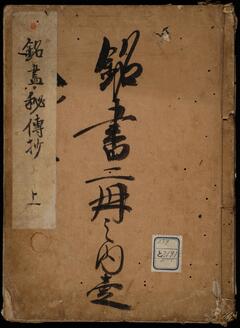 銘盡秘傳抄
上
銘書二冊之内壱